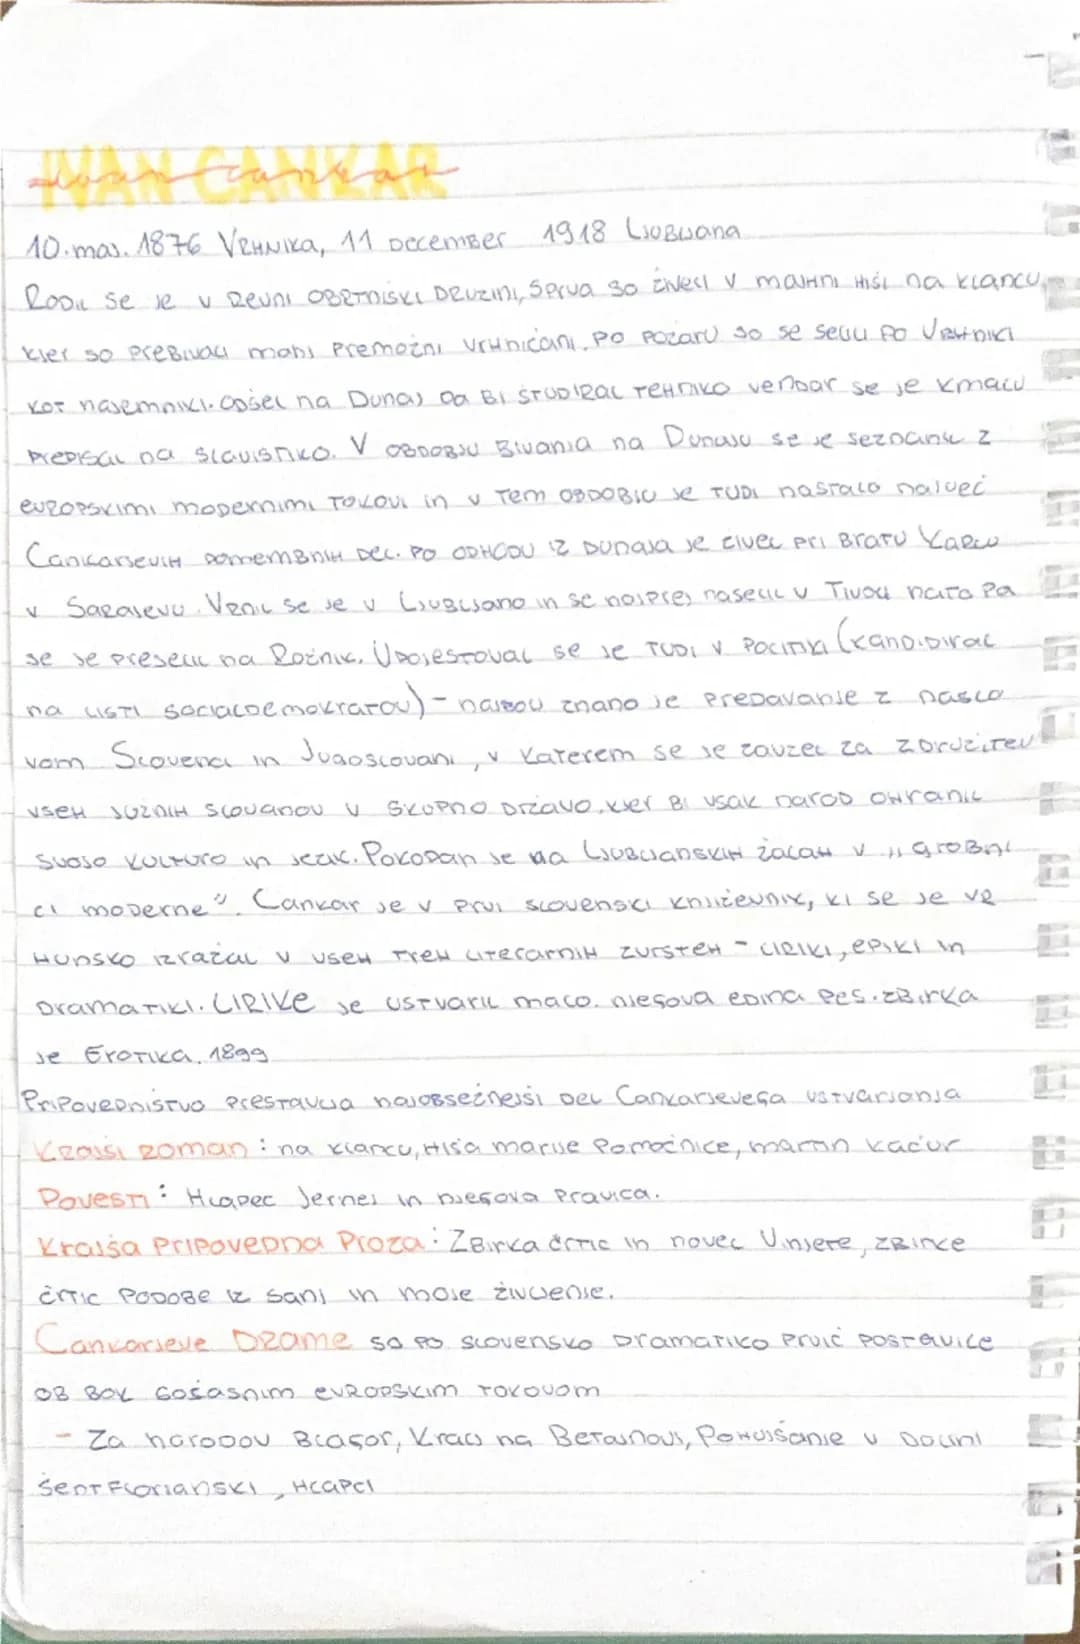 IVAN CANKAR
Ivan Cankar
10. maj. 1876 VRHNIKA, 11 DECEMBER 1918 LJUBLJANA
RODIL SE JE V REVNI OBRTNIŠKI DRUŽINI, SPRVA SO ŽIVELI V MAJHNI HIŠI NA KLANCU,
KJER SO PREBIVALI MANJ PREMOŽNI VRHNIČANI. PO POŽARU SO SE SELILI PO VRHNIKI
KOT NAJEMNIKI. ODŠEL NA DUNAJ DA BI ŠTUDIRAL TEHNIKO VENDAR SE JE KMALU
PREPISAL NA SLAVISTIKO. V OBDOBJU BIVANJA NA DUNAJU SE JE SEZNANIL Z
EVROPSKIMI MODERNIMI TOKOVI IN V TEM OBDOBJU JE TUDI NASTALO NAJVEČ
CANKARJEVIH POMEMBNIH DEL. PO ODHODU IZ DUNAJA JE ŽIVEL PRI BRATU KARLU
V SARAJEVU. VRNIL SE JE V LJUBLJANO IN SE NAJPREJ NASELIL V TIVOLI NATO PA
SE JE PRESELIL NA ROŽNIK. UDEJSTOVAL SE JE TUDI V POLITIKI (KANDIDIRAL
NA LISTI SOCIALDEMOKRATOV) - NAJBOLJ ZNANO JE PREDAVANJE Z NASLO
VOM SLOVENCI IN JUGOSLOVANI, V KATEREM SE JE ZAVZEL ZA ZDRUŽITEV
VSEH JUŽNIH SLOVANOV V SKUPNO DRŽAVO. KJER BI VSAK NAROD OHRANIL
SVOJO KULTURO IN JEZIK. POKOPAN JE NA LJUBLJANSKIH ŽALAH V „GROBNI
CI MODERNE". CANKAR JE V PRVI SLOVENSKI KNJIŽEVNIK, KI SE JE VR
HUNSKO IZRAŽAL V VSEH TREH LITERARNIH ZVRSTEH - LIRIKI, EPIKI IN
DRAMATIKI. LIRIKE JE USTVARIL MALO. NJEGOVA EDINA PES. ZBIRKA
JE EROTIKA. 1899
PRIPOVEDNIŠTVO PRESTAVLJA NAJOBSEŽNEJŠI DEL CANKARJEVEGA USTVARJANJA
KRAJŠI ROMAN: NA KLANCU, HIŠA MARIJE POMOČNICE, MARTIN KAČUR
POVESTI: HLAPEC JERNEJ IN NJEGOVA PRAVICA.
KRAJŠA PRIPOVEDNA PROZA: ZBIRKA ČRTIC IN NOVEL VINJETE, ZBIRKE
ČRTIC PODOBE IZ SANJ IN MOJE ŽIVLJENJE.
CANKARJEVE DRAME SO PO SLOVENSKO DRAMATIKO PRVIČ POSTAVILE
OB BOK GOŠASNIM EVROPSKIM TOKOVOM
- ZA NARODOV BLAGOR, KRALJ NA BETAJNOVI, POHUJŠANJE V DOLINI
ŠENTFLORJANSKI, HLAPCI